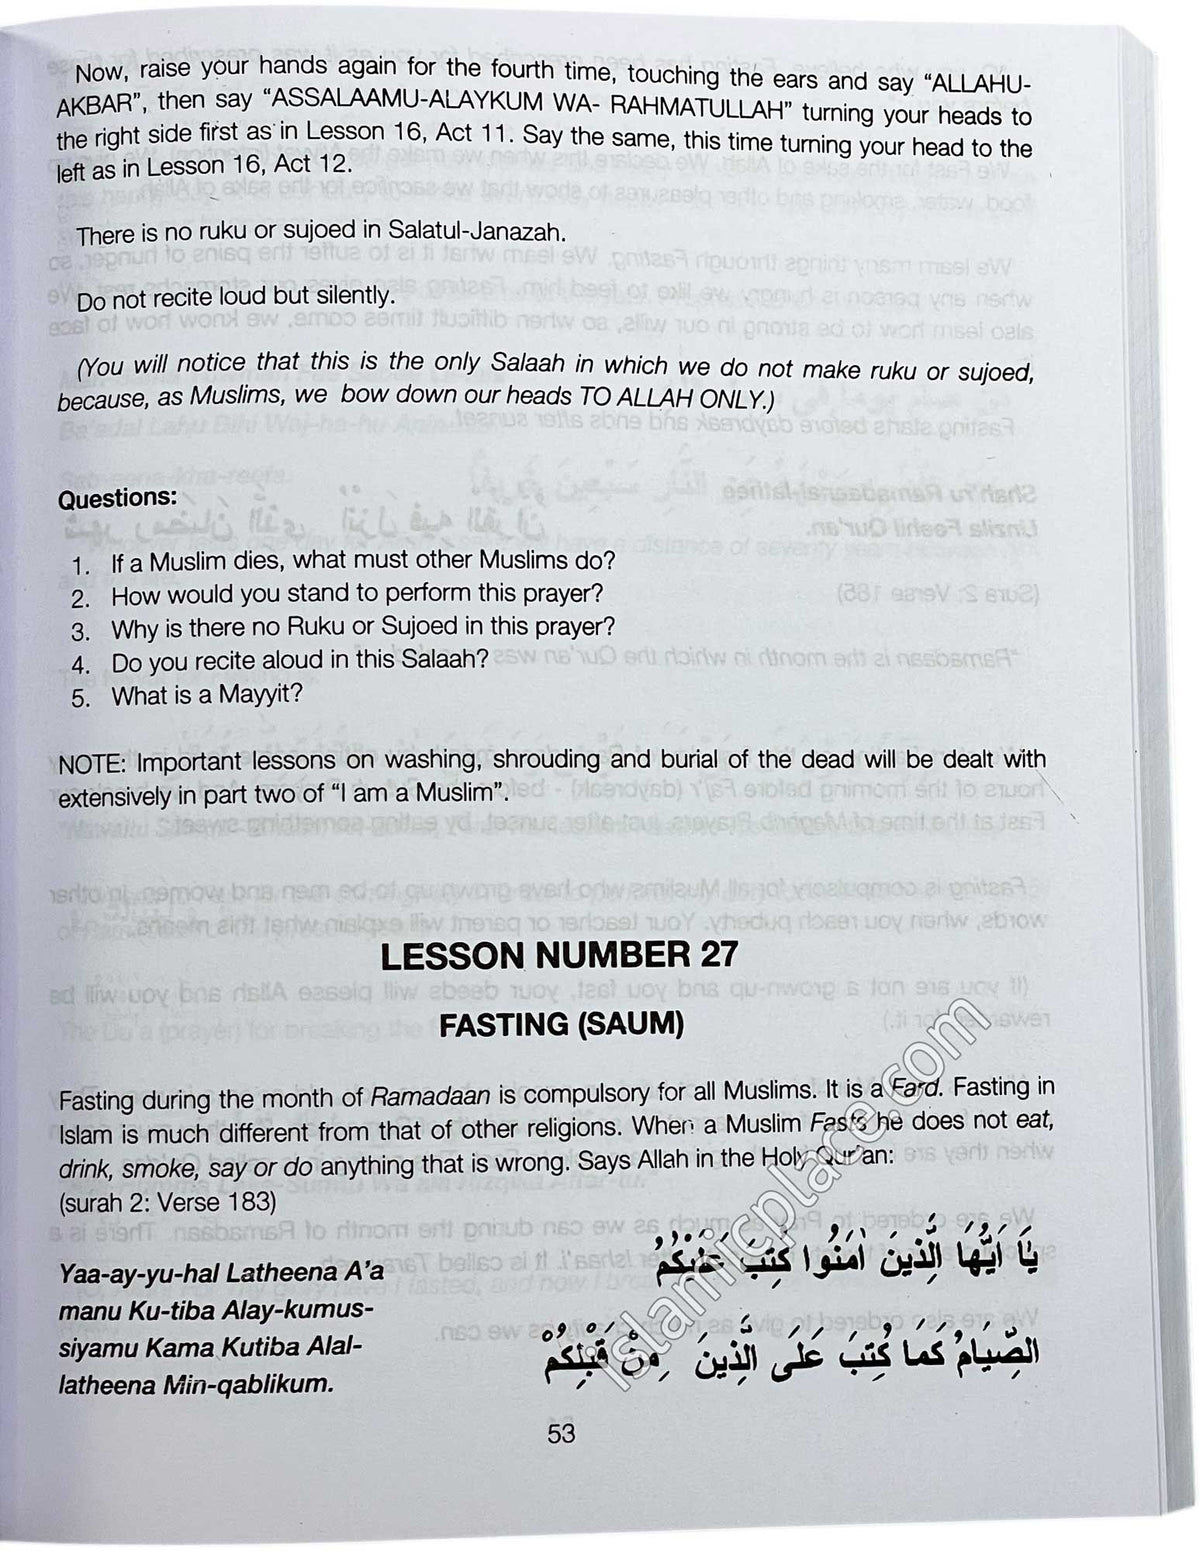 Now, raise your hands again for the fourth time, touching the ears and say “ALLAHU-
AKBAR”, then say “ASSALAAMU-ALAYKUM WA- RAHMATULLAH” turning your heads to
the right side first as in Lesson 16, Act 11. Say the same, this time turning your head to the
left as in Lesson 16, Act 12.
There is no ruku or sujoed in Salatul-Janazah.
Do not recite loud but silently.
(You will notice that this is the only Salaah in which we do not make ruku or sujoed,
because, as Muslims, we bow down our heads TO ALLAH ONLY.)
Questions:
1. If a Muslim dies, what must other Muslims do?
2. How would you stand to perform this prayer?
3. Why is there no Ruku or Sujoed in this prayer?
4. Do you recite aloud in this Salaah?
5. What is a Mayyit?
NOTE: Important lessons on washing, shrouding and burial of the dead will be dealt with
extensively in part two of “I am a Muslim”.
LESSON NUMBER 27
FASTING (SAUM)
Fasting during the month of Ramadaan is compulsory for all Muslims. It is a Fard. Fasting in
Islam is much different from that of other religions. When a Muslim Fasts he does not eat,
drink, smoke, say or do anything that is wrong. Says Allah in the Holy Qur’an:
(surah 2: Verse 183)
Yaa-ay-yu-hal Latheena A’a
manu Ku-tiba Alay-kumus-
siyamu Kama Kutiba Alal-
latheena Min-qablikum.
يَا اَيُّهَا الَّذِينَ اٰمَنُوا كُتِبَ عَلَيْكُمُ
الصِّيَامُ كَمَا كُتِبَ عَلَى الَّذِينَ مِنْ قَبْلِكُمْ
53
islamicplace.com